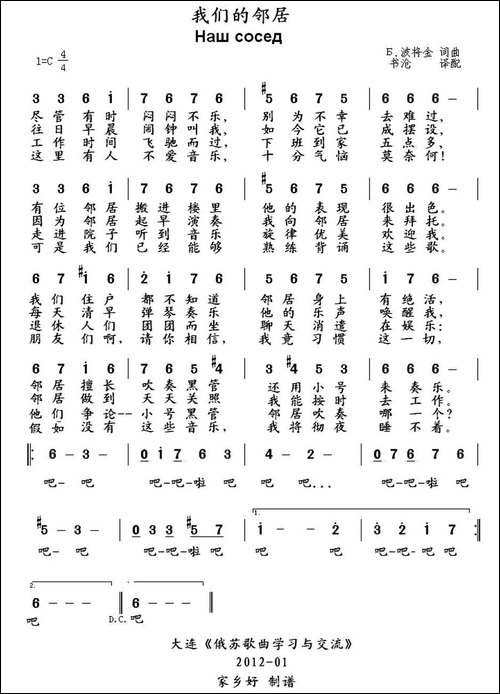 我们的邻居
Наш сосед
1=C 4/4
Б.波将金 词曲
书沧 译配
3 3 6 i | 7 6 7 6 | #5 6 7 5 | 6 6 6 –
尽管有时 闷闷不乐, 别为不幸 去难过,
往日早晨 闹钟叫我, 如今它已 成摆设,
工作时间 飞驰而过, 下班到家 五点多,
这里有人 不爱音乐, 十分气恼 莫奈何!
3 3 6 i | 7 6 7 6 | #5 6 7 5 | 6 6 6 –
有位邻居 搬进楼里 他的表现 很出色。
因为邻居 起早演奏 我向邻居 来拜托。
走进院子 听到音乐 旋律优美 欢迎我。
可是我们 已经能够 熟练背诵 这些歌。
我们住户 都不知道 邻居身上 有绝活,
每天清早 弹琴奏乐 他的乐声 唤醒我,
退休人们 团团而坐 聊天消遣 在娱乐:
朋友们啊, 请你相信, 我竟习惯 这一切,
邻居擅长 吹奏黑管 还用小号 来奏乐。
邻居做到 天天关照 我能按时 去工作。
他们争论— 小号黑管 邻居吹奏 哪一个?
假如没有 这些音乐, 我将彻夜 睡不着。
6 – 3 – | 0 i 7 6 3 | 4 – 2 – | 0 7 6 7 7
吧– 吧 吧–吧–啦 吧 吧 吧... 吧–吧–啦 吧
#5 – 3 – | 0 3 3 #5 7 | i – – 2 | 3 2 i 7
吧– 吧 吧–吧–啦吧 吧 吧 吧–吧–啦 吧
1.
2.
6 – – – | 6 – – –
吧 D.C. 吧
大连《俄苏歌曲学习与交流》
2012-01
家乡好 制谱